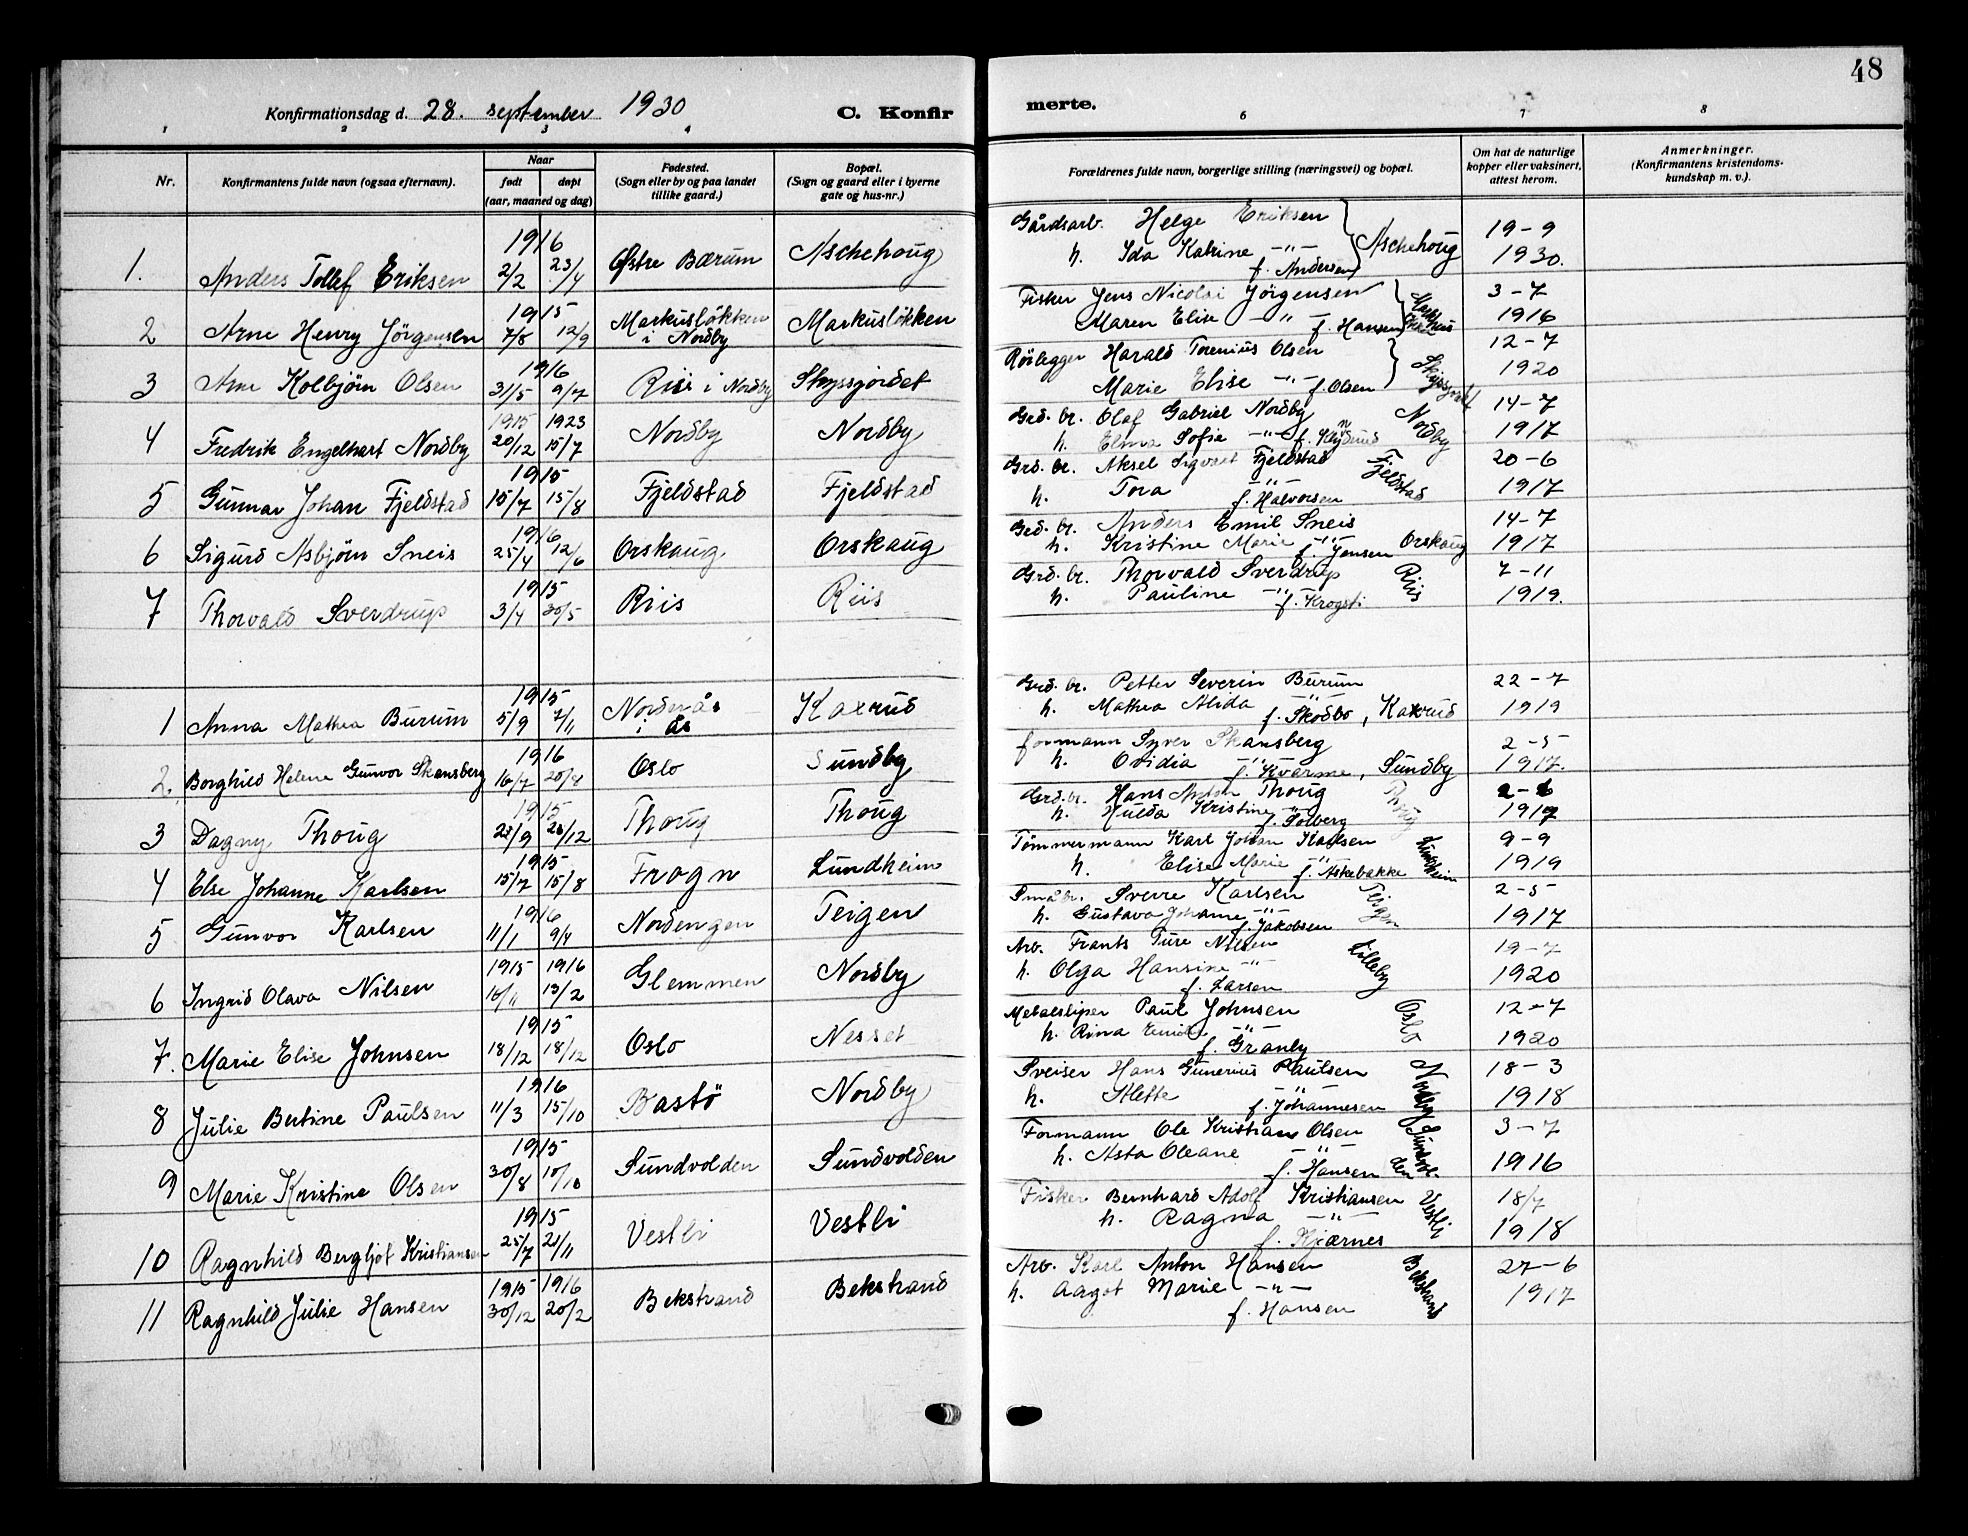 48
Konfirmationsdag d. 28. september 1930 C. Konfirmerte.
1 2 3 4 6 7 8
Nr. Konfirmantens fulde navn (ogsaa efternavn). Naar født døpt (aar, maaned og dag) Fødested. (Sogn eller by og paa landet tillike gaard.) Bopæl. (Sogn og gaard eller i byerne gate og hus-nr.) Forældrenes fulde navn, borgerlige stilling (næringsvei) og bopæl. Om hat de naturlige kopper eller vaksinert, attest herom. Anmerkninger. (Konfirmantens kristendomskundskap m. v.).
1. Anders Tollef Eriksen 1916 2/2 23/4 Østre Bærum Aschehoug Gårdsarb. Helge Eriksen h. Ida Katrine -"- f. Andersen Aschehoug 19-9 1930.
2 Arne Henry Jörgensen 1915 7/8 12/9 Markuslökken i Nordby Markuslökken Fisker Jens Nicolai Jörgensen Maren Elise -"- f. Hansen 3-7 1916
3 Arne Kolbjörn Olsen 1916 31/5 9/7 Riis i Nordby Skyssjordet Rörlegger Harald Torenius Olsen Marie Elise -"- f. Olsen Skyssjordet 12-7 1920
4 Fredrik Engelhart Nordby 1915 20/12 1923 15/7 Nordby Nordby Grd. br. Olaf Gabriel Nordby h. Elma Sofie -"- f. Nordby 14-7 1917
5 Gunnar Johan Fjeldstad 1915 15/7 15/8 Fjeldstad Fjeldstad Grd. br. Aksel Sigvart Fjeldstad h. Tora -"- f. Halvorsen Fjeldstad 20-6 1917
6 Sigurd Asbjörn Sneis 1916 25/4 12/6 Orskaug Orskaug Grd. br. Anders Emil Sneis h. Kristine Marie -"- f. Jensen Orskaug 14-7 1917
7 Thorvald Sverdrup 1915 3/4 30/5 Riis Riis Grd. br. Thorvald Sverdrup h. Pauline -"- f. Krogsti Riis 7-11 1919.
1 Anna Mathea Burum 1915 5/9 7/11 Nordnås i ås Kaxrud Grd. br. Petter Severin Burum h. Mathea Alida -"- f. Skodbo, Kaxrud 22-7 1919
2. Borghild Helene Gunvor Skansberg 1916 16/7 20/8 Oslo Sundby formann Syver Skansberg h. Ovidia -"- f. Kvarme, Sundby 2-5 1917.
3 Dagny Thoug 1915 23/9 26/12 Thoug Thoug Grd. br. Hans Anton Thoug h. Hulda Kristine -"- f. Solberg Thoug 2-6 1917
4 Else Johanne Karlsen 1915 15/7 15/8 Frogn Lundheim Tømmermann Karl Johan Karlsen h. Elise Marie -"- f. Askebakke Lundheim 9-9 1919
5 Gunvor Karlsen 1916 11/1 9/4 Nordengen Teigen Småbr. Sverre Karlsen h. Gustava Johanne -"- f. Jakobsen Teigen 2-5 1917
6 Ingrid Olava Nilsen 1915 16/11 1916 13/2 Glemmen Nordby Arb. Frants Ture Nilsen h. Olga Hansine -"- f. Larsen Lilleby 19-7 1920
7. Marie Elise Johnsen 1915 18/12 18/12 Oslo Nesset Metalsliper Paul Johnsen h. Rina Emilie -"- f. Granby Oslo 12-7 1920
8 Julie Bertine Paulsen 1916 11/3 15/10 Bastö Nordby Sveiser Hans Gunerius Paulsen h. Alette -"- f. Johannesen Nordby 18-3 1918
9 Marie Kristine Olsen 1915 30/8 10/10 Sundvolden Sundvolden Formann Ole Kristian Olsen h. Asta Oleane -"- f. Hansen Sundvolden 3-7 1916
10 Ragnhild Bergljot Kristiansen 1915 25/7 21/11 Vestli Vestli Fisker Bernhard Adolf Kristiansen h. Ragna -"- f. Kjærnes Vestli 18/7 1918
11 Ragnhild Julie Hansen 1915 30/12 1916 20/2 Bekstrand Bekstrand Arb. Karl Anton Hansen h. Aagot Marie -"- f. Hansen Bekstrand 27-6 1917